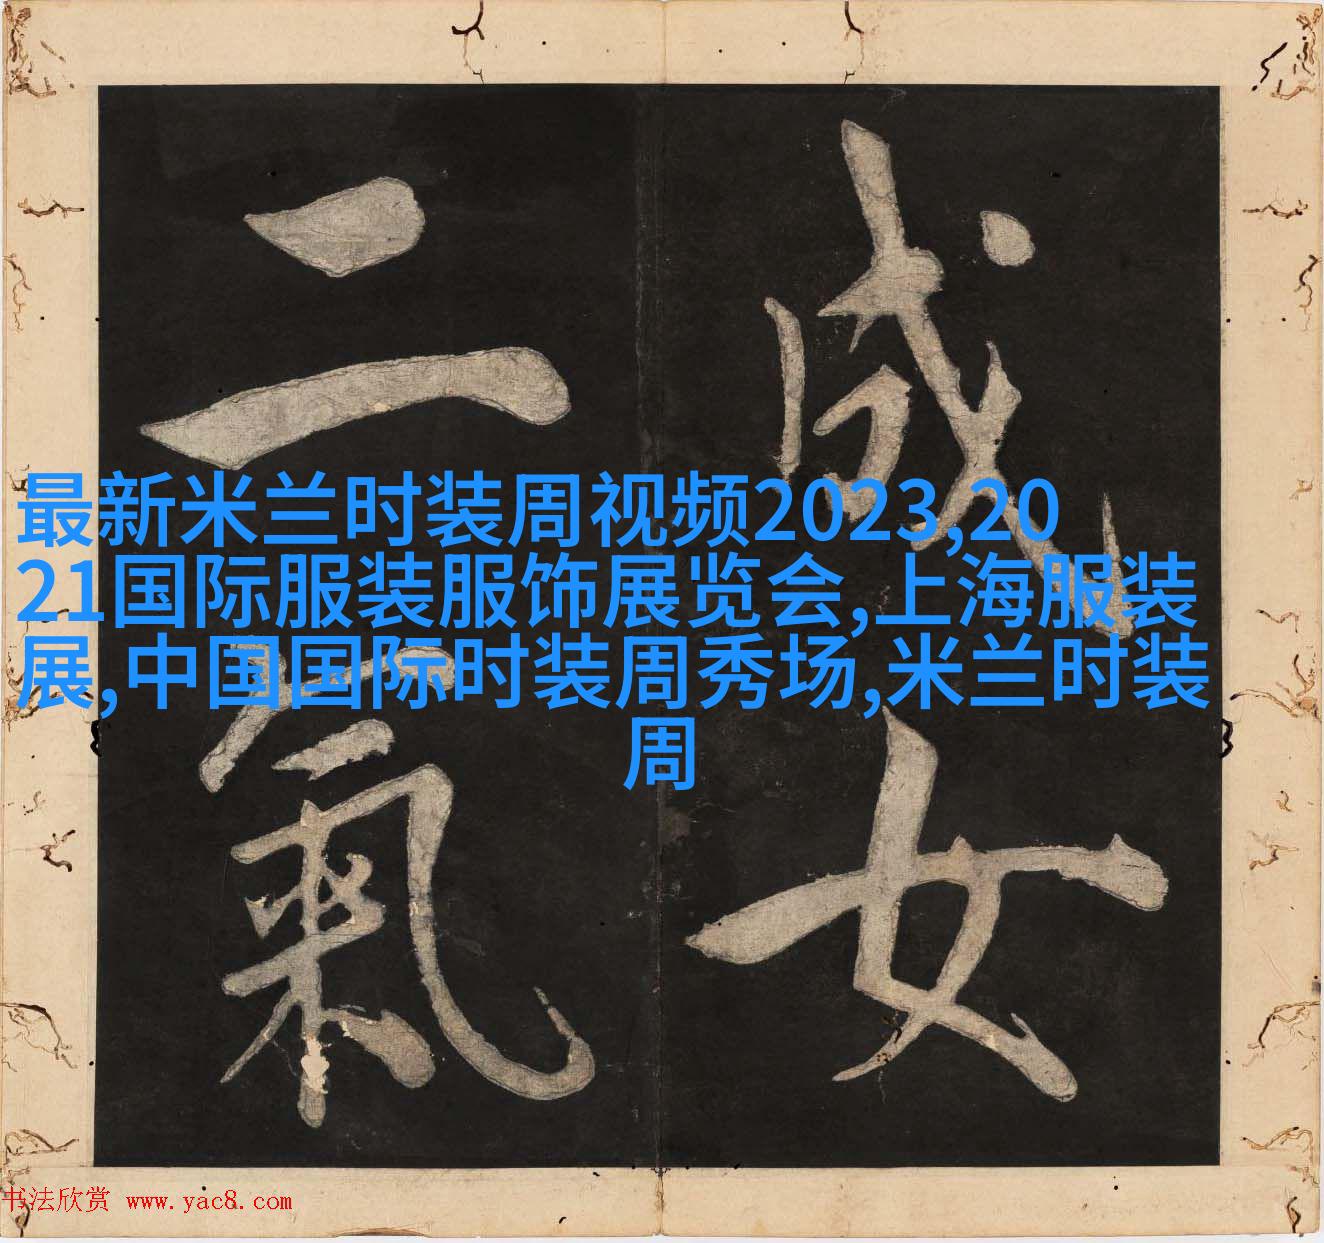 成女
二氣
最新米兰时装周视频2023,20
21国际服装服饰展览会,上海服装
展,中国国际时装周秀场,米兰时装
周
书法欣赏 www.yac8.com